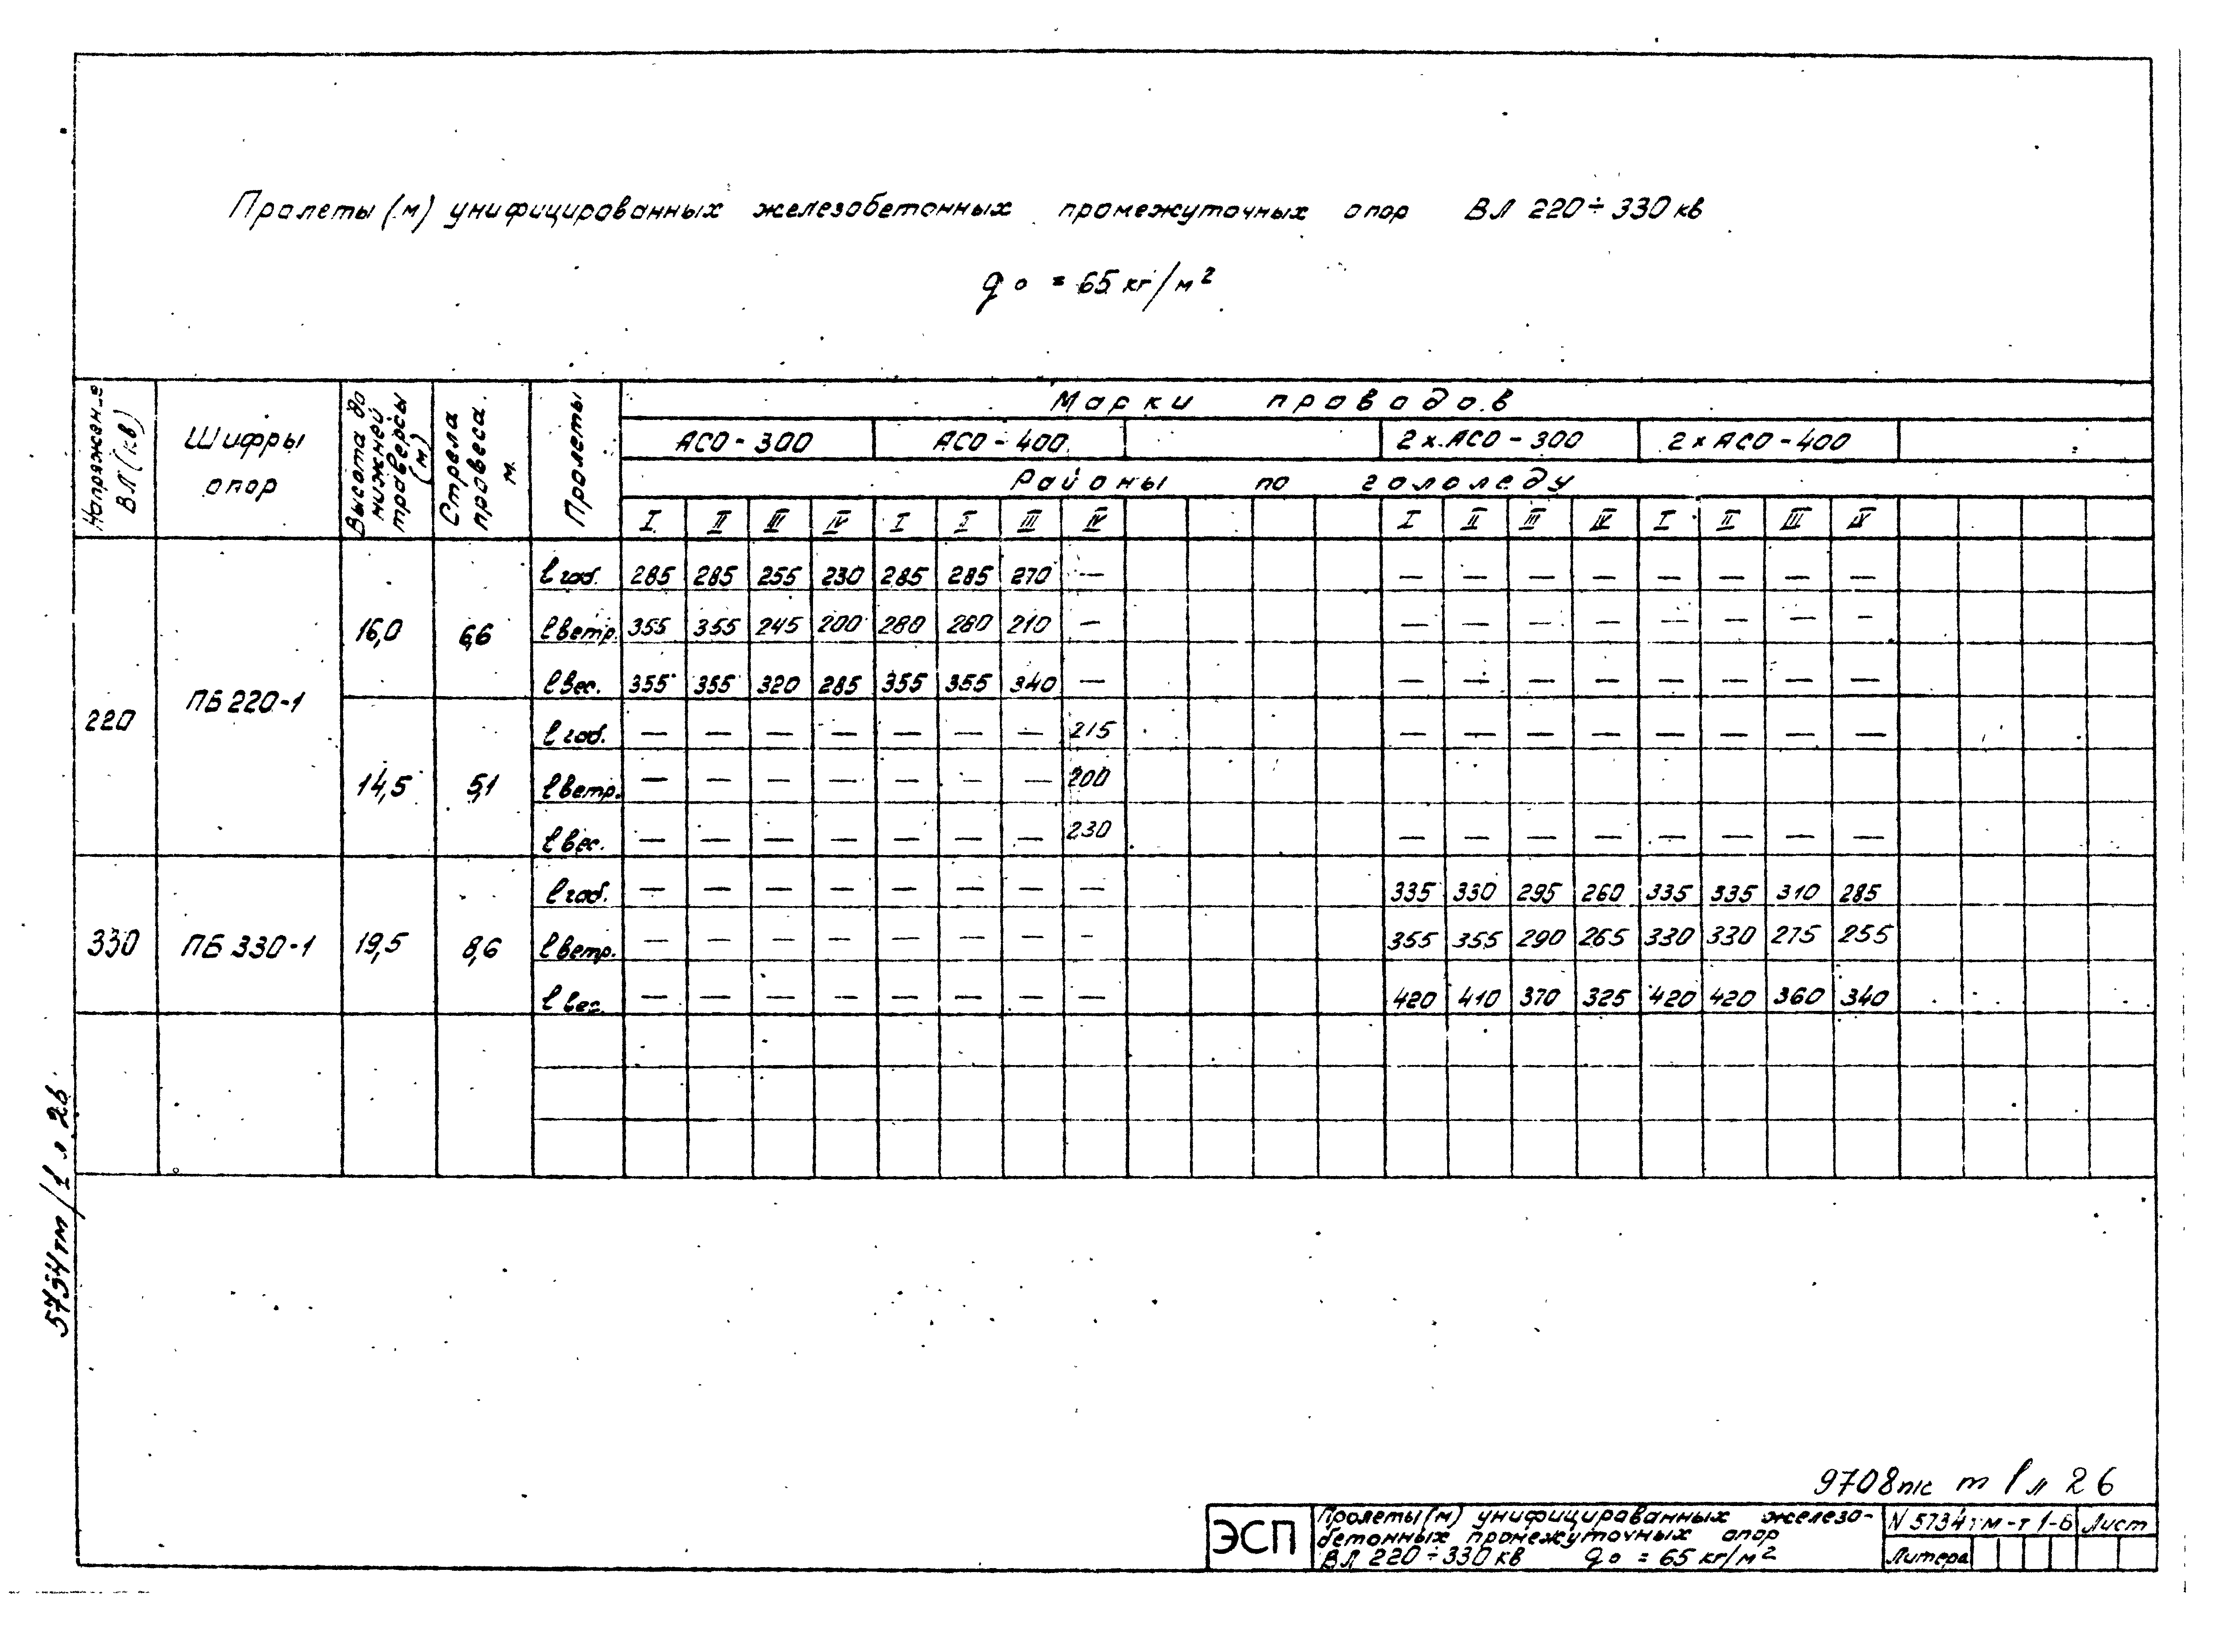 Пролеты (м) унифицированных железобетонных промежуточных опор ВЛ 220÷330 кв
qo = 65 кг/м²
Напряжение ВЛ (кв)
Шифры опор
Высота до нижней траверсы (м)
Стрела провеса м.
Пролеты
Марки проводов
АСО-300 АСО-400 2 х АСО-300 2 х АСО-400
Районы по гололеду
I II III IV I II III IV I II III IV I II III IV
220 ПБ 220-1 16,0 6,6
l габ. 285 285 255 230 285 285 270 — — — — — — — — —
l ветр. 355 355 245 200 280 280 210 — — — — — — — — —
l вес. 355 355 320 285 355 355 340 — — — — — — — — —
14,5 5,1
l габ. — — — — — — — 215 — — — — — — — —
l ветр. — — — — — — — 200
l вес. — — — — — — — 230 — — — — — — — —
330 ПБ 330-1 19,5 8,6
l габ. — — — — — — — — 335 330 295 260 335 335 310 285
l ветр. — — — — — — — — 355 355 290 265 330 330 275 255
l вес. — — — — — — — — 420 410 370 325 420 420 360 340
5734тм/1 л. 26
9708пс т 1 л 26
ЭСП
Пролеты (м) унифицированных железо-
бетонных промежуточных опор
ВЛ 220÷330 кв qo = 65 кг/м²
N 5734тм-т 1-6 Лист
Литера